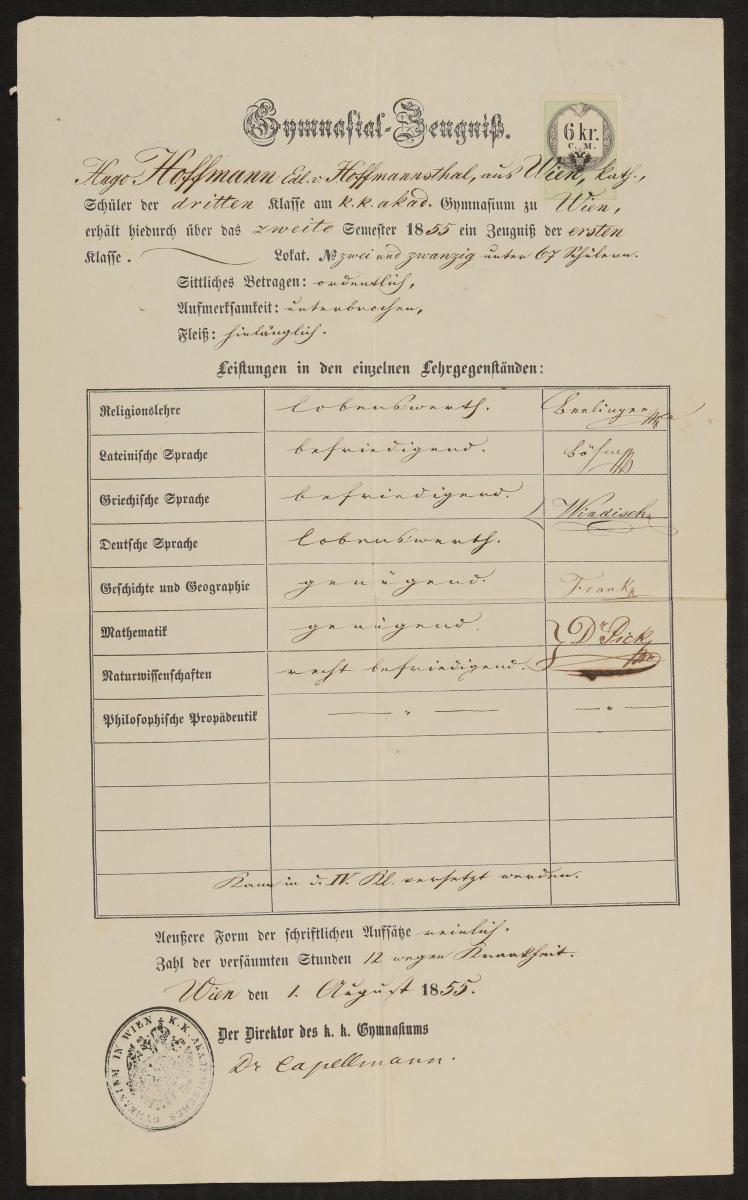 Gymnasial-Zeugniß.
6 kr.
C. M.
Hugo Hoffmann Edl. v. Hoffmannsthal, aus Wien, kath.,
Schüler der dritten Klasse am k. k. akad. Gymnasium zu Wien,
erhält hiedurch über das zweite Semester 1855 ein Zeugniß der ersten
Klasse. Lokat. No zwei und zwanzig unter 67 Schülern.
Sittliches Betragen: ordentlich,
Aufmerksamkeit: unterbrochen,
Fleiß: hinlänglich.
Leistungen in den einzelnen Lehrgegenständen:
Religionslehre lobenswerth.
Lateinische Sprache befriedigend. Böhm
Griechische Sprache befriedigend. Windisch
Deutsche Sprache lobenswerth.
Geschichte und Geographie genügend. Frank
Mathematik genügend. Dr Pick
Naturwissenschaften recht befriedigend.
Philosophische Propädeutik — " — — " —
Kann in d. IV. Kl. versetzt werden.
Aeußere Form der schriftlichen Aufsätze reinlich.
Zahl der versäumten Stunden 12 wegen Krankheit.
Wien den 1. August 1855.
Der Direktor des k. k. Gymnasiums
Dr Capellmann.
K. K. AKADEMISCHES GYMNASIUM IN WIEN